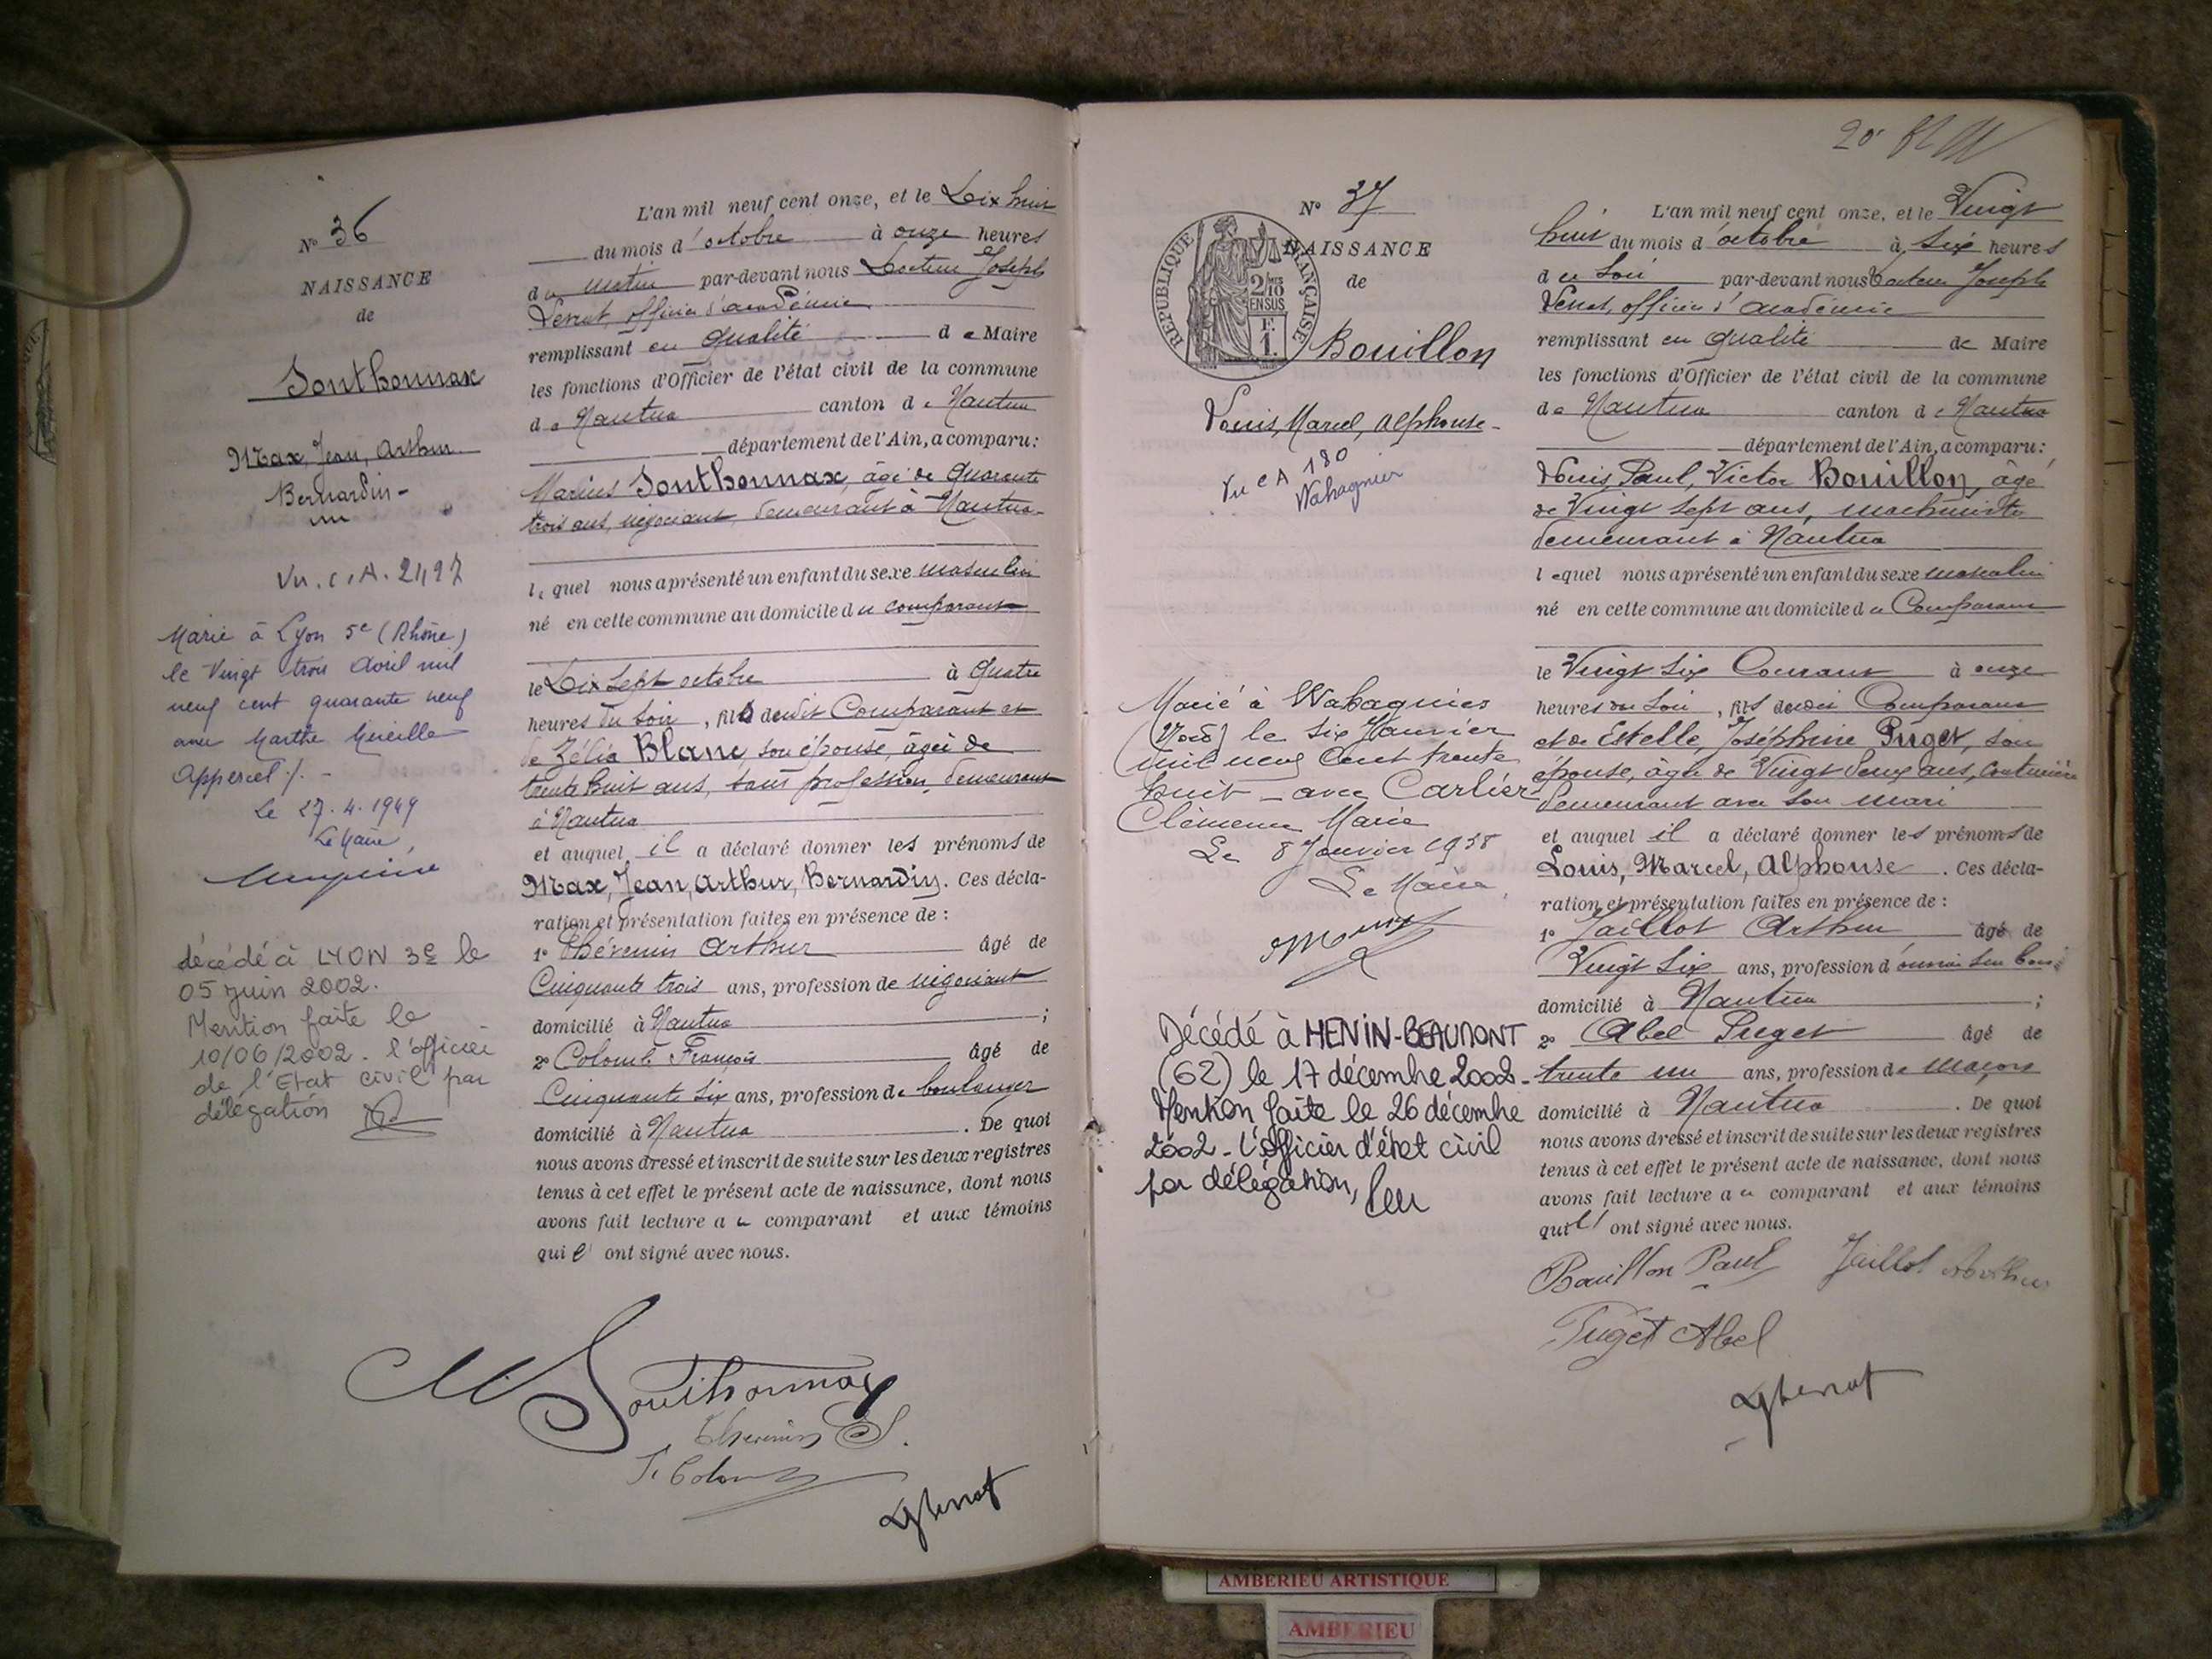 N° 36
NAISSANCE
de
Sonthonnax
Max, Jean, Arthur
Bernardin -
Vu. C.A.
Marié à Lyon 5e (Rhône)
le Vingt trois Avril mil
neuf cent quarante neuf
avec Marthe Mireille
Appercel ./. -
Le 27.4.1949
Le Maire,
décédé à LYON 3e le
05 juin 2002.
Mention faite le
10/06/2002. l'officier
de l'Etat civil par
délégation
L'an mil neuf cent onze, et le Dix huit
du mois d'octobre à onze heures
du matin par-devant nous Docteur Joseph
officier d'académie
remplissant en qualité de Maire
les fonctions d'Officier de l'état civil de la commune
de Nantua canton de Nantua
département de l'Ain, a comparu:
Marius Sonthonnax, âgé de quarante
trois ans, négociant, demeurant à Nantua -
lequel nous a présenté un enfant du sexe masculin
né en cette commune au domicile du comparant
le Dix Sept octobre à quatre
heures du soir, fils dudit Comparant et
de Zélia Blanc, son épouse, âgée de
trente huit ans, sans profession, demeurant
à Nantua
et auquel il a déclaré donner les prénoms de
Max, Jean, Arthur, Bernardin. Ces décla-
ration et présentation faites en présence de :
1° Thévenin Arthur âgé de
Cinquante trois ans, profession de négociant
domicilié à Nantua ;
2° Colomb François âgé de
Cinquante Six ans, profession de boulanger
domicilié à Nantua . De quoi
nous avons dressé et inscrit de suite sur les deux registres
tenus à cet effet le présent acte de naissance, dont nous
avons fait lecture au comparant et aux témoins
qui l' ont signé avec nous.
M Sonthonnax
Thevenin
F. Colomb
20
N° 37
NAISSANCE
de
RÉPUBLIQUE FRANÇAISE
2/10 EN SUS
Bouillon
Louis, Marcel, Alphonse -
Vu C A 180
Wahagnies
Marié à Wahagnies
(Nord) le six Janvier
mil neuf cent trente
huit - avec Carlier
Clémence Marie
Le 8 Janvier 1938
Le Maire,
Décédé à HENIN-BEAUMONT
(62) le 17 décembre 2002 -
Mention faite le 26 décembre
2002 - L'officier d'état civil
par délégation,
L'an mil neuf cent onze, et le Vingt
huit du mois d'octobre à six heures
du soir par-devant nous Docteur Joseph
officier d'académie
remplissant en qualité de Maire
les fonctions d'Officier de l'état civil de la commune
de Nantua canton de Nantua
département de l'Ain, a comparu:
Louis, Paul, Victor Bouillon, âgé
de Vingt Sept ans, machiniste
demeurant à Nantua
lequel nous a présenté un enfant du sexe masculin
né en cette commune au domicile du Comparant
le Vingt Six Courant à onze
heures du soir, fils dudit Comparant
et de Estelle, Joséphine Puget, son
épouse, âgée de Vingt Deux ans, couturière
demeurant avec son mari
et auquel il a déclaré donner les prénoms de
Louis, Marcel, Alphonse . Ces décla-
ration et présentation faites en présence de :
1° Jaillot Arthur âgé de
Vingt Six ans, profession d'ouvrier sur bois
domicilié à Nantua ;
2° Abel Puget âgé de
trente un ans, profession de maçon
domicilié à Nantua . De quoi
nous avons dressé et inscrit de suite sur les deux registres
tenus à cet effet le présent acte de naissance, dont nous
avons fait lecture au comparant et aux témoins
qui l' ont signé avec nous.
Bouillon Paul Jaillot Arthur
Puget Abel
AMBERIEU ARTISTIQUE
AMBERIEU